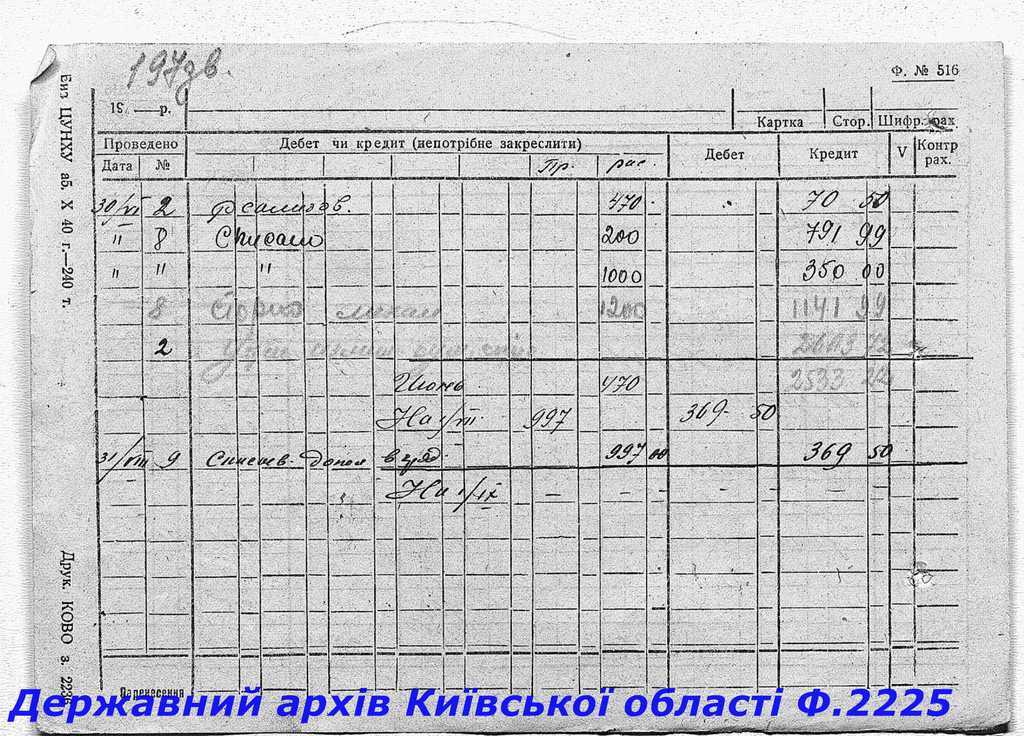 197зв.
Ф. № 516
19 — р.
Картка Стор. Шифр. рах
Проведено Дебет чи кредит (непотрібне закреслити) Дебет Кредит V Контр рах.
Дата № Пр. рас.
30/VI 2 470 70 50
" 8 Списано 200 791 99
" " " 1000 350 00
8 1200 1141 99
2
Июнь 470 2533 22
На 1/VII 997 369 50
31/VIII 9 997 00 369 50
На 1/IX — — — — —
Перенесення
Биз ЦУНХУ аб. X 40 г.—240 т.
Друк. КОВО з.
Державний архів Київської області Ф.2225